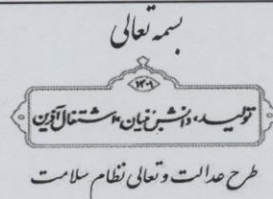 بسمه تعالی
۱۴۰۱
تولید، دانش بنیان، اشتغال آفرین
طرح عدالت و تعالی نظام سلامت